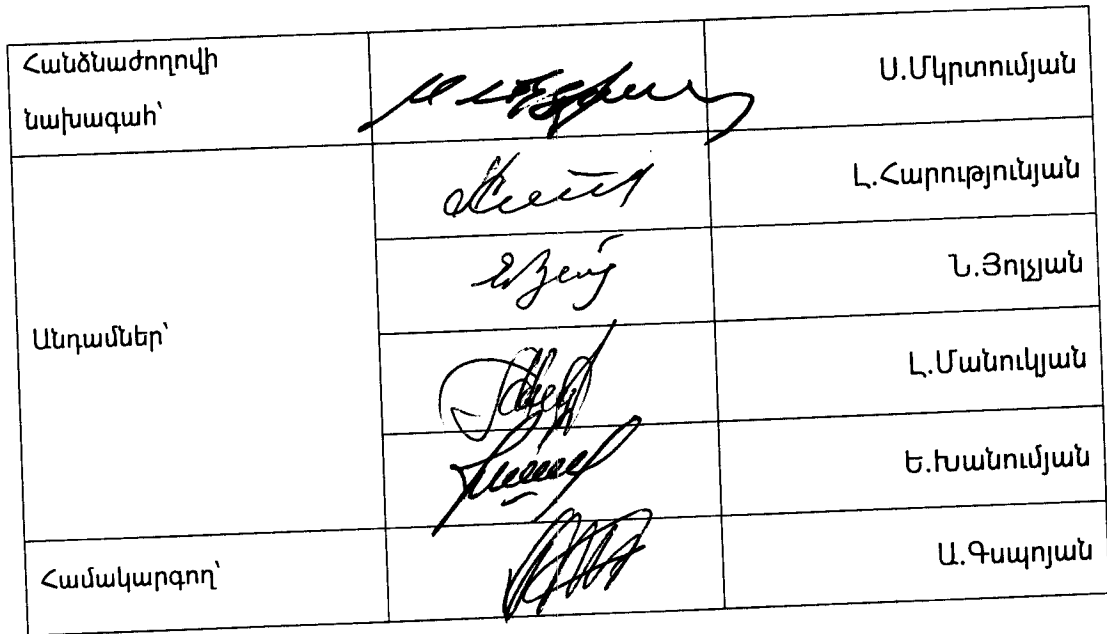 Հանձնաժողովի
նախագահ՝
Ս.Մկրտումյան
Լ.Հարությունյան
Անդամներ՝
Ն.Յոլչյան
Լ.Մանուկյան
Ե.Խանումյան
Համակարգող՝
Ա.Գսպոյան